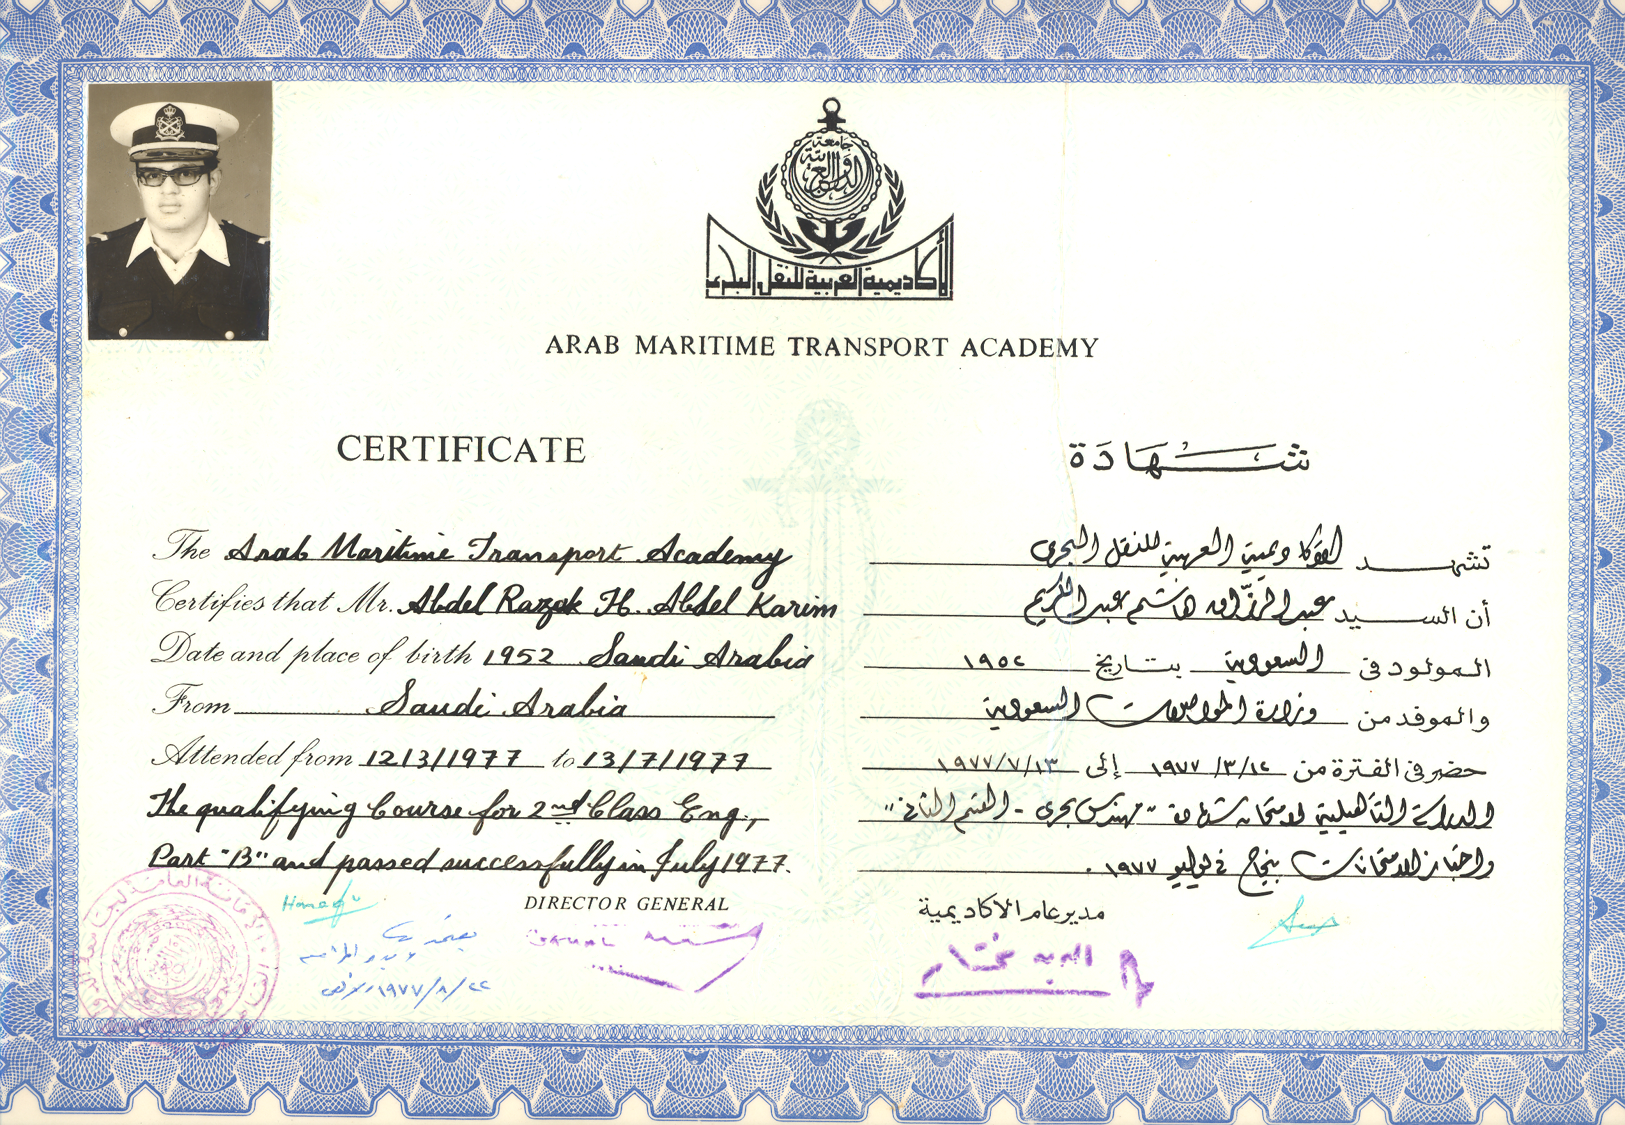 جامعة
الدول العربية
الأكاديمية العربية للنقل البحرى
ARAB MARITIME TRANSPORT ACADEMY
CERTIFICATE
The Arab Maritime Transport Academy
Certifies that Mr. Abdel Razak H. Abdel Karim
Date and place of birth 1952 Saudi Arabia
From Saudi Arabia
Attended from 12/3/1977 to 13/7/1977
The qualifying Course for 2nd Class Eng.,
Part "B" and passed successfully in July 1977.
DIRECTOR GENERAL
شهادة
تشهد الأكاديمية العربية للنقل البحرى
أن السيد عبد الرزاق هاشم عبد الكريم
المولود فى السعودية بتاريخ ١٩٥٢
والموفد من وزارة المواصلات السعودية
حضر فى الفترة من ١٩٧٧/٣/١٢ إلى ١٩٧٧/٧/١٣
الدراسة التأهيلية لامتحان شهادة "مهندس بحرى - القسم الثانى"
واجتاز الامتحانات بنجاح فى يوليو ١٩٧٧ .
مدير عام الاكاديمية
١٩٧٧/٨/٢٢